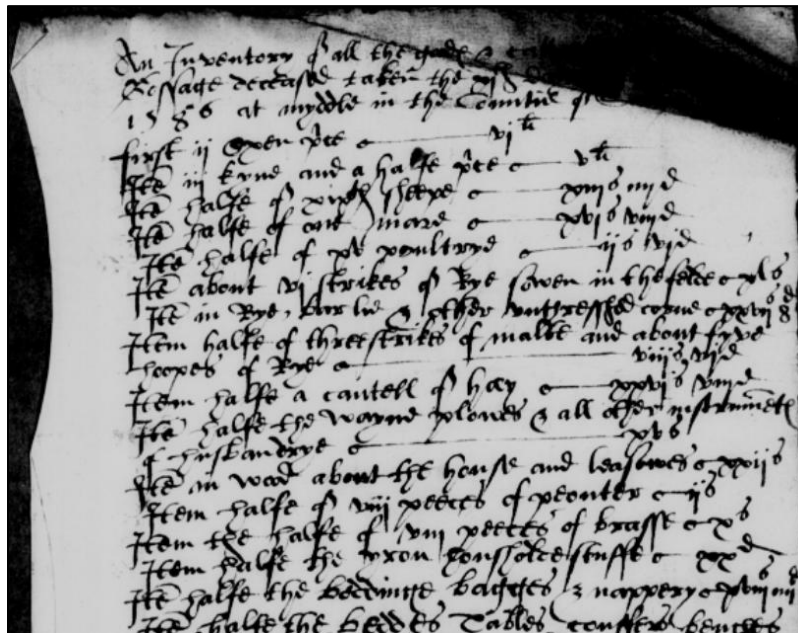 An Inventory of all the goods & catt
deceased taken the
1586 at myddle in the Countie of
first ij Oxen p'ce vi li
Itē iij kyne and a halfe p'ce v li
Itē halfe of sheepe xiijs iiijd
Itē halfe of one mare xvis viijd
Itē halfe of xv poultrye ijs vid
Itē about vi strikes of Rye sowen in the felde xls
Itē in Rye, barlie & other unthresshed corne
Item halfe of three strikes of malte and about fyve
hoopes of Rye viijs vijd
Item halfe a cantell of hay xxvis viijd
Itē halfe the wayne plowes & all other instrumēts
of husbandrye xvs
Itē in wod about the house and leasowes xxijs
Item halfe of viij peeces of peouter ijs
Item the halfe of viij peeces of brasse xs
Item halfe the yron housholde stuffe xxd
Itē halfe the beddinge bagges & nappery xviijs iiijd
Itē halfe the beddes Tables coffers benches